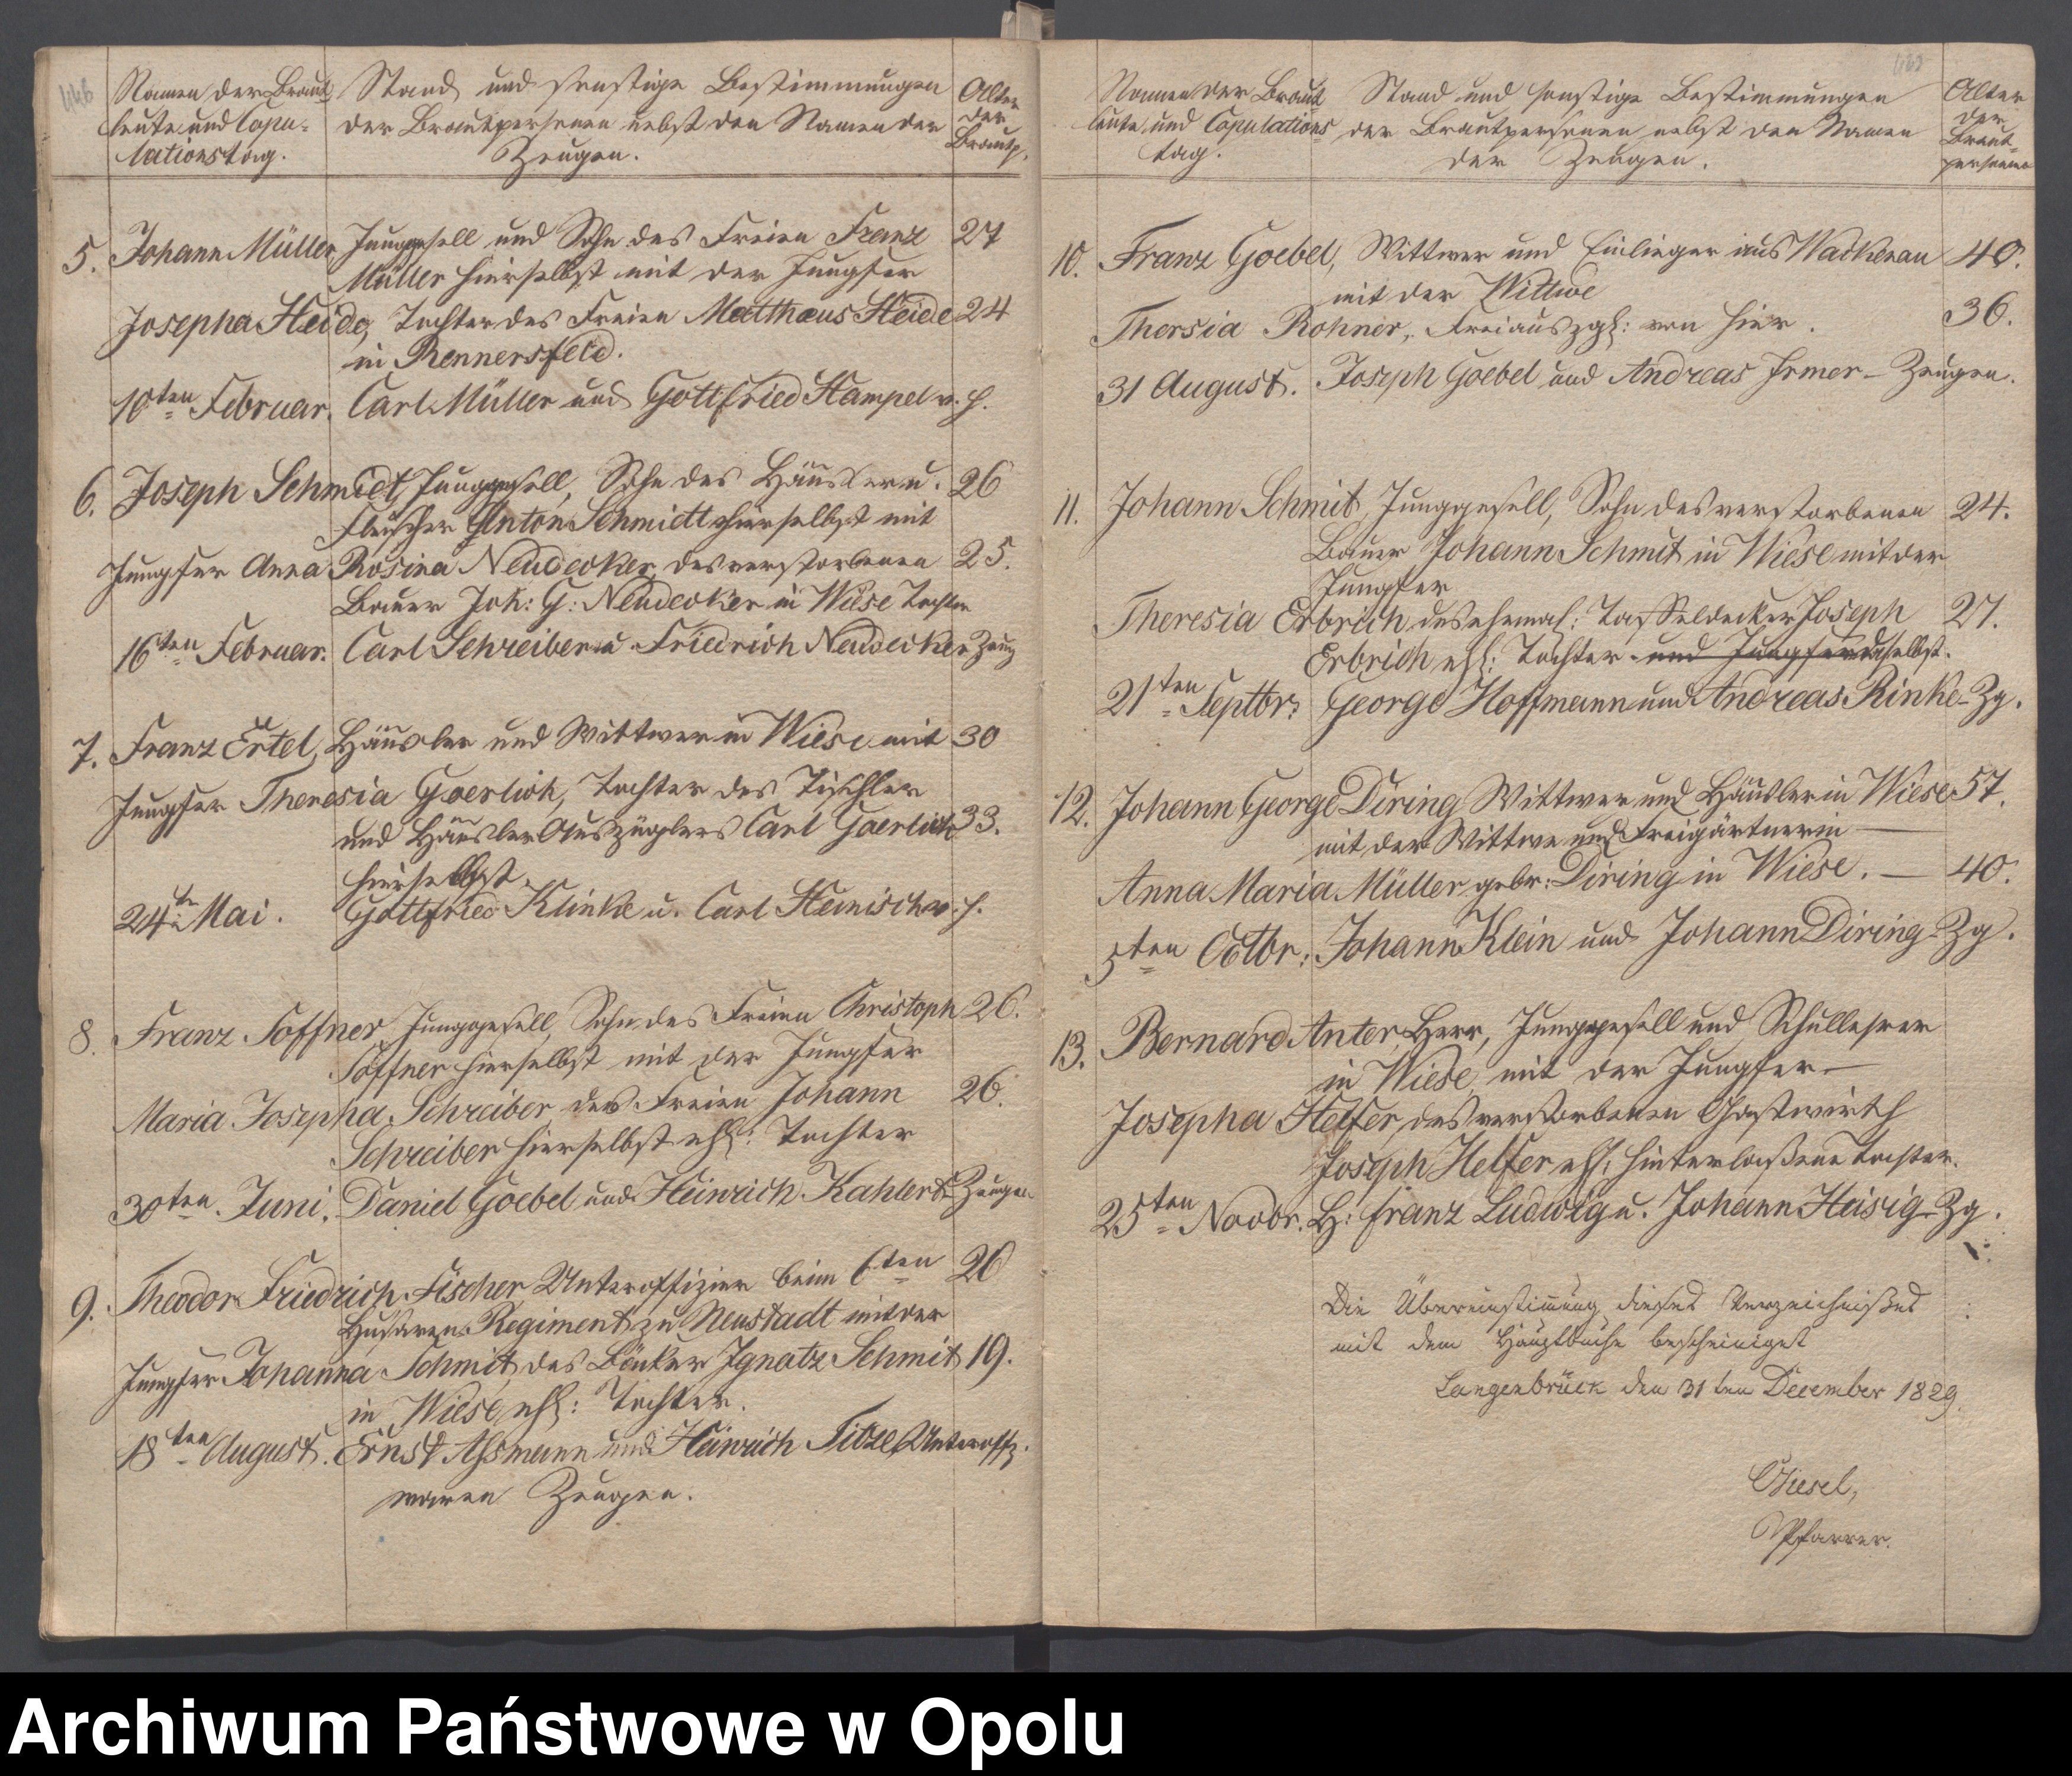 446
Namen der Braut-
leute und Copu-
lationstag.
Stand und sonstige Bestimmungen
der Brautpersonen nebst den Namen der
Zeugen.
Alter
der
Brautp.
5. Johann Müller, Junggesell und Sohn des Freien Franz 27
Müller hierselbst mit der Jungfer
Josepha Heide, Tochter des Freien Matthaeus Heide 24
in Rennersfeld.
10ten Februar. Carl Müller und Gottfried Hampel v. h.
6. Joseph Schmidt, Junggesell, Sohn des Häusler u. 26
Fleischer Anton Schmidt hierselbst mit
Jungfer Anna Rosina Neudecker, des verstorbenen 25.
Bauer Joh: G: Neudecker in Wiese Tochter
16ten Februar. Carl Schreiber u. Friedrich Neudecker Zeug
7. Franz Ertel, Häusler und Wittwer in Wiese mit 30
Jungfer Theresia Goerlich, Tochter des Tischler
und Häusler Auszüglers Carl Goerlich 33.
hierselbst.
24te Mai. Gottfried Klinke u. Carl Heinisch v. h.
8. Franz Soffner, Junggesell, Sohn des Freien Christoph 26.
Soffner hierselbst mit der Jungfer
Maria Josepha Schreiber des Freien Johann 26.
Schreiber hierselbst ehl: Tochter
30ten Juni. Daniel Goebel und Heinrich Kahlert Zeugen
9. Theodor Friedrich Fischer Unteroffizier beim 6ten 26
Husaren Regiment zu Neustadt mit der
Jungfer Johanna Schmit, des Bänker Ignatz Schmit 19.
in Wiese, ehl: Tochter.
18ten August. Ernst Assmann und Heinrich Titze Unteroffz.
waren Zeugen.
Namen der Braut
leute und Copulations
tag.
Stand und sonstige Bestimmungen
der Brautpersonen nebst den Namen
der Zeugen.
Alter
der
Braut-
personen
10. Franz Goebel, Wittwer und Einlieger aus Wackenau 40.
mit der Wittwe
Thersia Rohner, Freiauszgl: von hier. 36.
31 August. Joseph Goebel und Andreas Irmer - Zeugen.
11. Johann Schmit, Junggesell, Sohn des verstorbenen 24.
Bauer Johann Schmit in Wiese mit der
Jungfer
Theresia Erbrich des ehemal: Joseph 27.
Erbrich ehl: Tochter und Jungfer daselbst.
21ten Septbr: George Hoffmann und Andreas Rinke Zg.
12. Johann George Diring Wittwer und Häusler in Wiese 57.
mit der Wittwe und Freigärtnerin
Anna Maria Müller gebr: Diring in Wiese. — 40.
5ten Octbr: Johann Klein und Johann Diring Zg.
13. Bernard Anter, Herr, Junggesell und Schullehrer
in Wiese, mit der Jungfer
Josepha Helfer, des verstorbenen Gastwirth
Joseph Helfer ehl: hinterlaßene Tochter.
25ten Novbr. H: Franz Ludwig u. Johann Heisig Zg.
Die Übereinstimmung dieses Verzeichnißes
mit dem Hauptbuche bescheiniget
Langenbrück den 31ten December 1829.
Pfarrer.
Archiwum Państwowe w Opolu